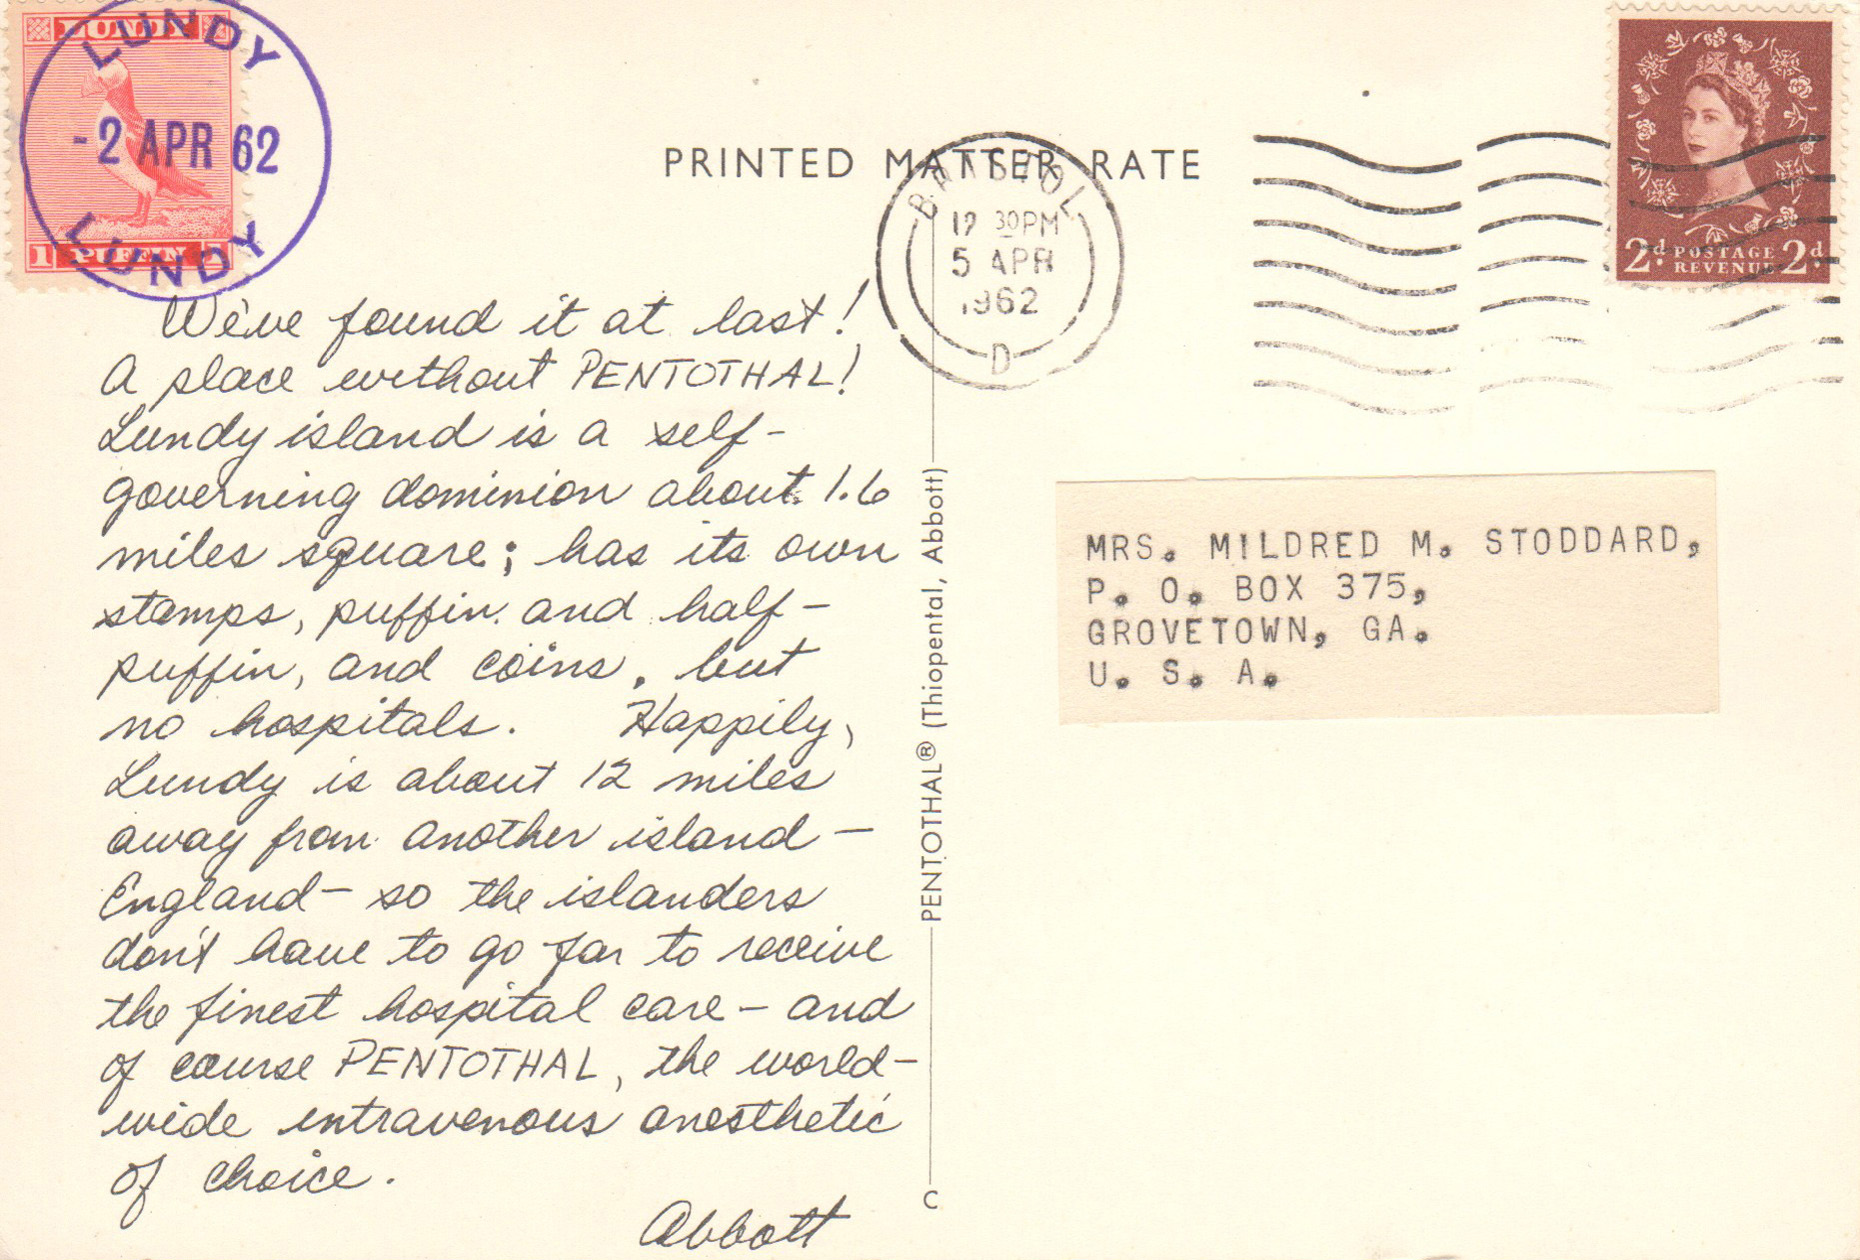 LUNDY
LUNDY
-2 APR 62
1 PUFFIN 1
LUNDY
PRINTED MATTER RATE
BRISTOL
12 30PM
5 APR
1962
D
2d. POSTAGE REVENUE 2d.
We've found it at last!
A place without PENTOTHAL!
Lundy island is a self-
governing dominion about 1.6
miles square; has its own
stamps, puffin and half-
puffin, and coins, but
no hospitals. Happily,
Lundy is about 12 miles
away from another island—
England— so the islanders
don't have to go far to receive
the finest hospital care— and
of course PENTOTHAL, the world-
wide intravenous anesthetic
of choice.
Abbott
PENTOTHAL® (Thiopental, Abbott)
C
MRS. MILDRED M. STODDARD,
P. O. BOX 375,
GROVETOWN, GA.
U. S. A.